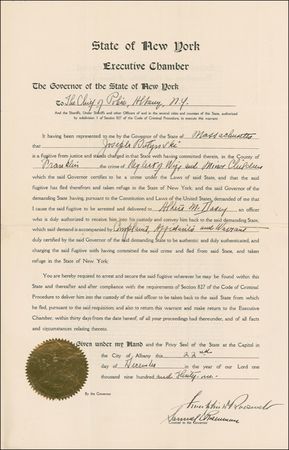 State of New York
Executive Chamber
The Governor of the State of New York
To The Chief of Police, Albany, N.Y.
And the Sheriffs, Under Sheriffs and other Officers of and in the several cities and counties of this State, authorized
by subdivision 1 of Section 827 of the Code of Criminal Procedure, to execute this warrant
It having been represented to me by the Governor of the State of Massachusetts
that Joseph
is a fugitive from justice and stands charged in that State with having committed therein, in the County of
Franklin the crime of Neglect of Wife and Minor Children
which the said Governor certifies to be a crime under the Laws of said State, and that the
said fugitive has fled therefrom and taken refuge in the State of New York; and the said Governor of the
demanding State having, pursuant to the Constitution and Laws of the United States, demanded of me that
I cause the said fugitive to be arrested and delivered to Albert M. an officer
who is duly authorized to receive him into his custody and convey him back to the said demanding State,
which said demand is accompanied by Complaint, Affidavits and Warrant
duly certified by the said Governor of the said demanding State to be authentic and duly authenticated, and
charging the said fugitive with having committed the said crime and fled from said State, and taken
refuge in the State of New York:
You are hereby required to arrest and secure the said fugitive wherever he may be found within this
State and thereafter and after compliance with the requirements of Section 827 of the Code of Criminal
Procedure to deliver him into the custody of the said officer to be taken back to the said State from which
he fled, pursuant to the said requisition; and also to return this warrant and make return to the Executive
Chamber, within thirty days from the date hereof, of all your proceedings had thereunder, and of all
facts and circumstances relating thereto.
Given under my Hand and the Privy Seal of the State at the Capitol in
the City of Albany this 22nd
day of December in the year of our Lord one
thousand nine hundred and thirty-one.
By the Governor
Franklin D Roosevelt
Samuel I. Rosenman
Counsel to the Governor